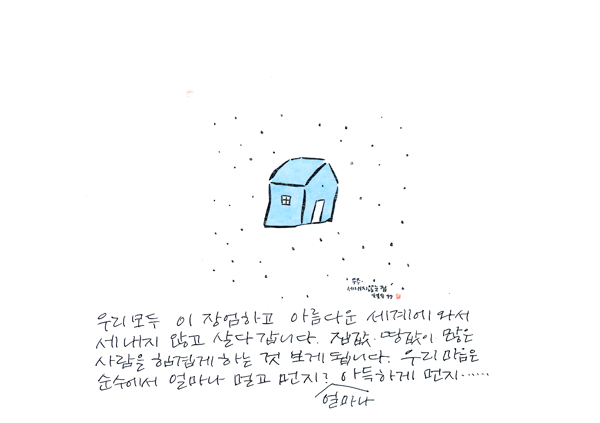 우주-
세내지않는 집
우리 모두 이 장엄하고 아름다운 세계에 와서
세내지 않고 살다 갑니다. 집값·땅값이 많은
사람을 힘겹게 하는 것 보게 됩니다. 우리 마음은
순수에서 얼마나 멀고 먼지? 아득하게 먼지······
얼마나